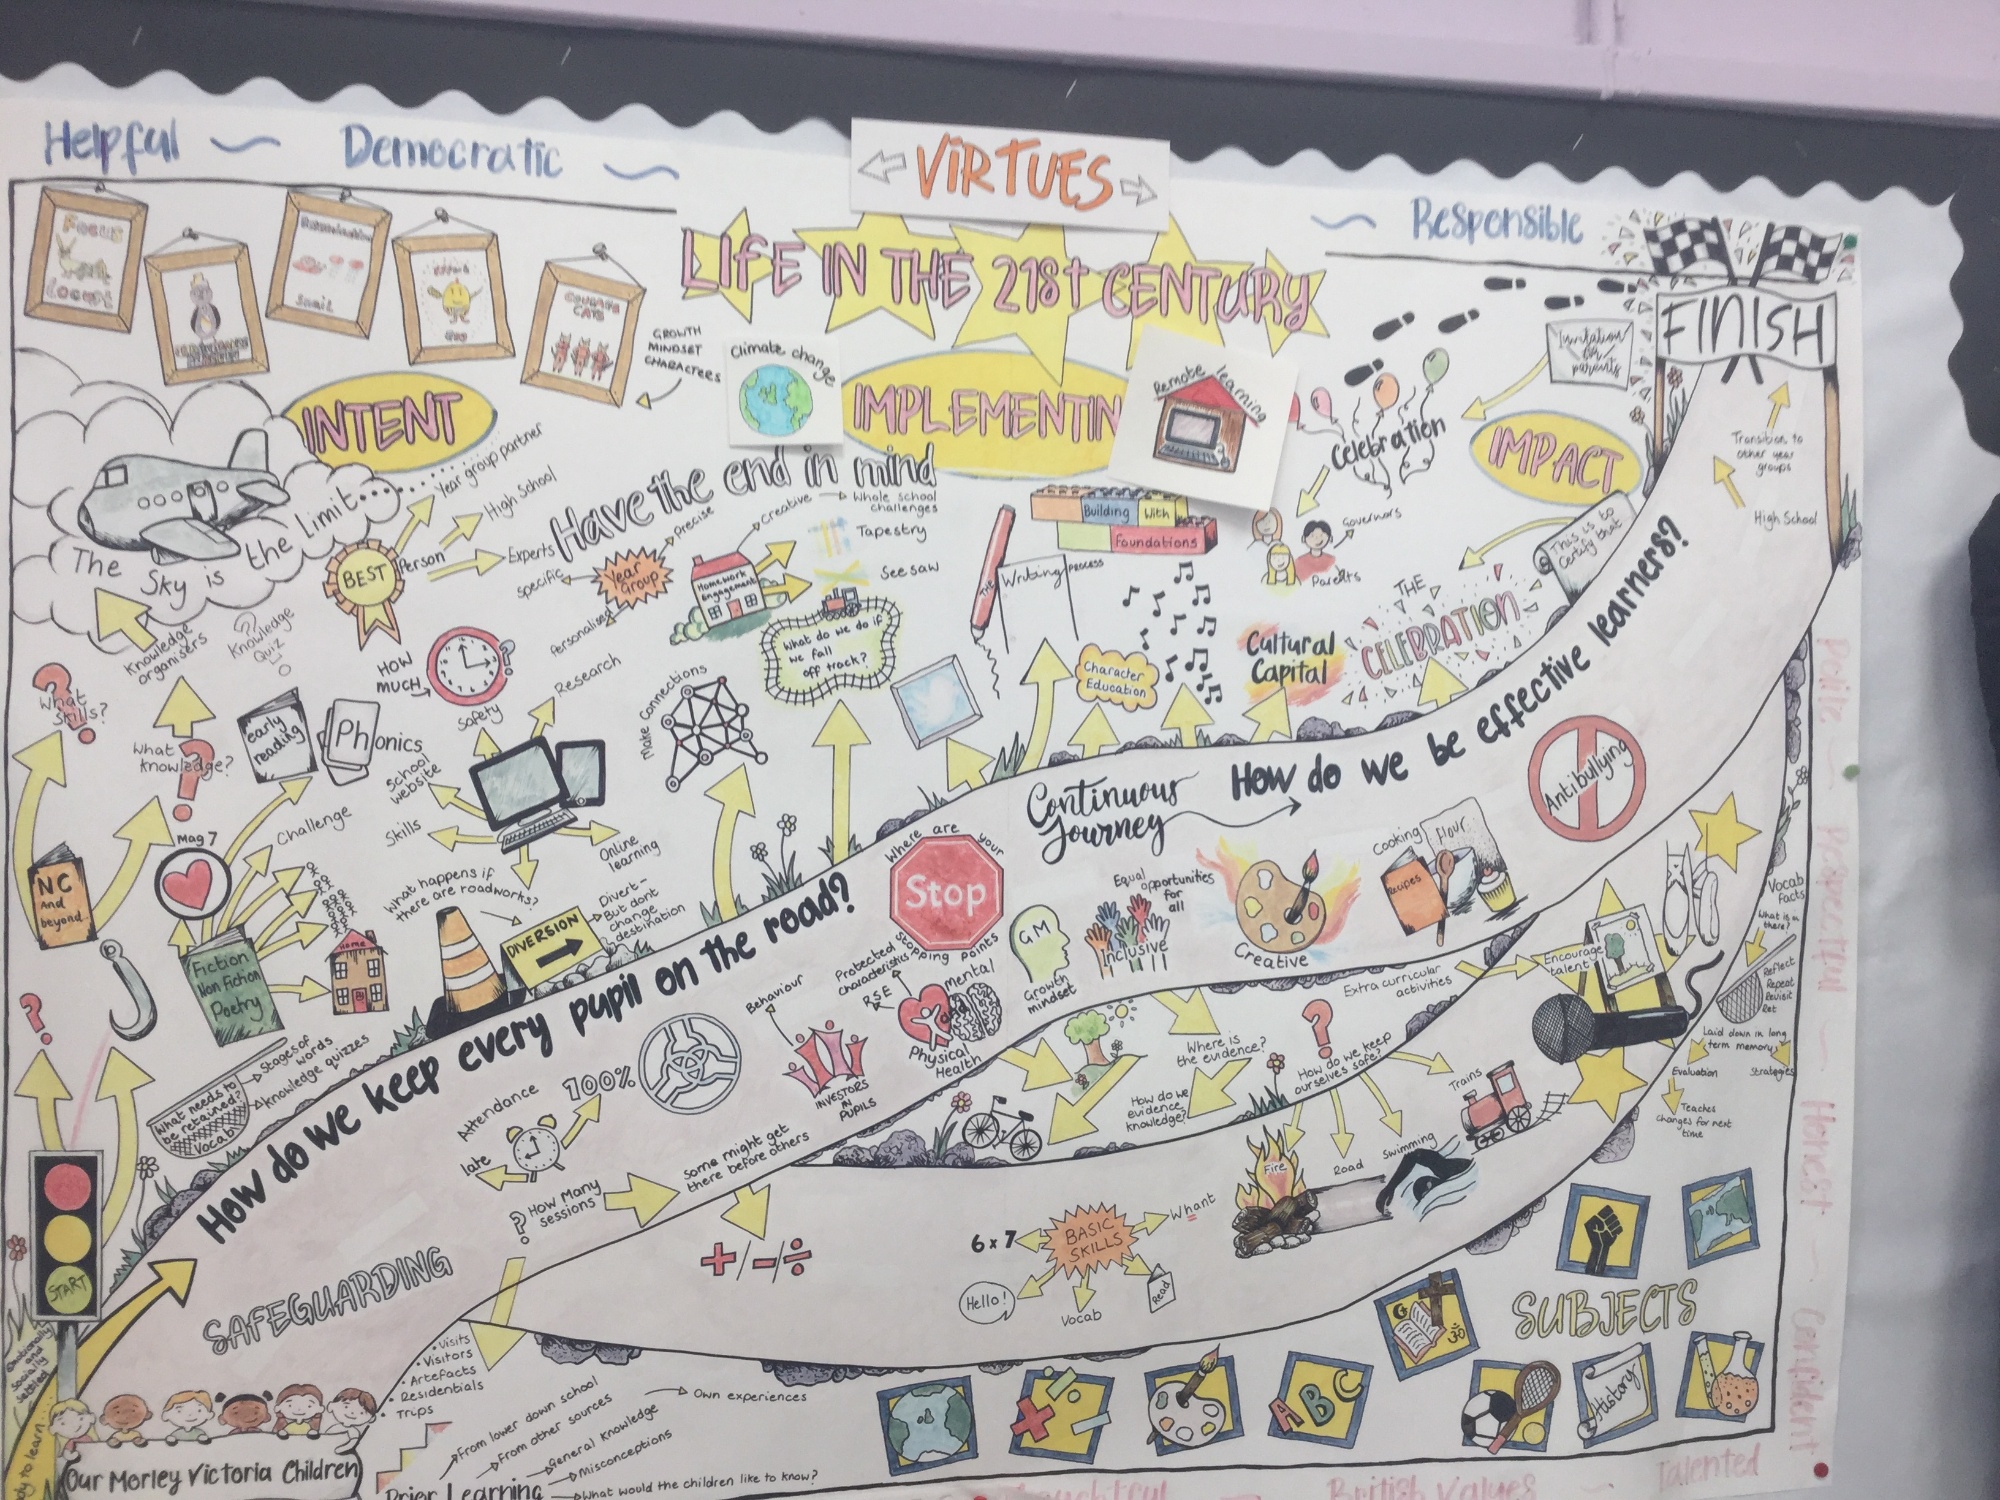 Helpful
Democratic
VIRTUES
Responsible
FOCUS
LOCUST
Snail
COURAGE
CATS
GROWTH
MINDSET
CHARACTERS
LIFE IN THE 21st CENTURY
Climate change
Remote learning
Invitation
for
parents
FINISH
INTENT
IMPLEMENTIN
IMPACT
Celebration
Transition to
other year
groups
High School
The Sky is the Limit
BEST
Person
Year group partner
High School
Experts
Have the end in mind
Year
Group
Precise
specific
Personalised
Homework
Engagement
Creative
Whole school
challenges
Tapestry
See saw
What do we do if
we fall
off track?
Building With
foundations
THE
Writing
PROCESS
Governors
Parents
This is to
Certify that
THE
CELEBRATION
Cultural
Capital
Character
Education
Knowledge
organisers
Knowledge
Quiz
HOW
MUCH
What
Skills?
What
knowledge?
early
reading
Phonics
Safety
Research
School
website
Skills
Online
learning
Make Connections
Mag 7
Challenge
NC
And
beyond
Fiction
Non Fiction
Poetry
Home
What happens if
there are roadworks?
DIVERSION
Divert -
But dont
change
destination
How do we keep every pupil on the road?
Where are your
Stop
Stopping Points
Continuous
Journey
How do we be effective learners?
Antibullying
What needs to
be retained?
Vocab
Stages of
words
knowledge quizzes
Attendance
100%
late
How Many
sessions
Behaviour
INVESTORS
IN
PUPILS
Protected
characteristics
RSE
Mental
and
Physical
Health
GM
Growth
mindset
Equal
opportunities
for
all
Inclusive
Creative
Cooking
Flour
Recipes
Some might get
there before others
Where is
the evidence?
How do we
evidence
knowledge?
Extra curricular
activities
How do we keep
ourselves safe?
Encourage
talent
Trains
Fire
Road
Swimming
Vocab
Facts
What is in
there?
Reflect
Repeat
Revisit
Ret
Laid down in long
term memory
Evaluation
Strategies
Teaches
changes for next
time
START
SAFEGUARDING
+/-/÷
BASIC
SKILLS
6 x 7
Whant
Hello!
Vocab
Read
• Visits
• Visitors
• Artefacts
• Residentials
• Trips
Emotionally
and
socially
settled
dy to learn
Our Morley Victoria Children
Prior Learning
From lower down school
From other sources
General knowledge
Misconceptions
What would the children like to know?
Own experiences
SUBJECTS
ABC
History
Polite
Respectful
Honest
Confident
Talented
British Values